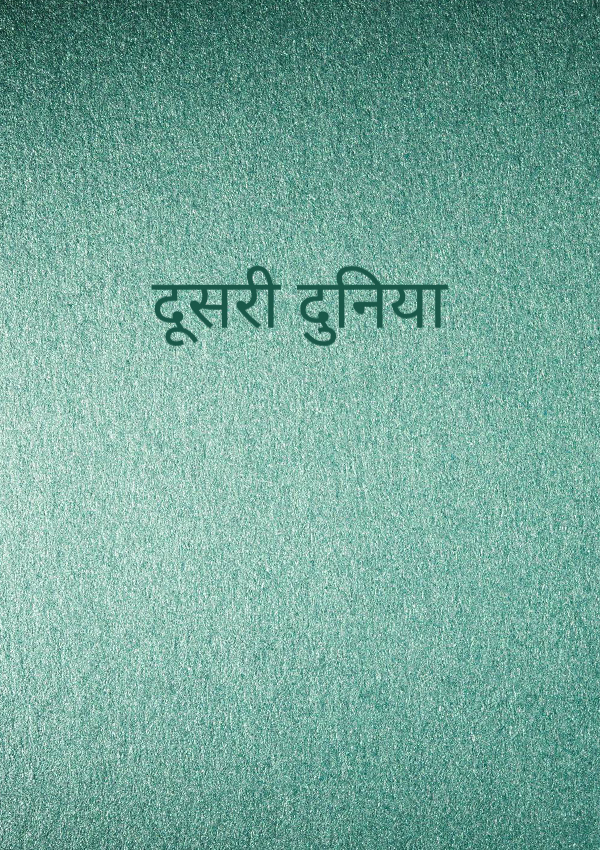 दूसरी दुनिया